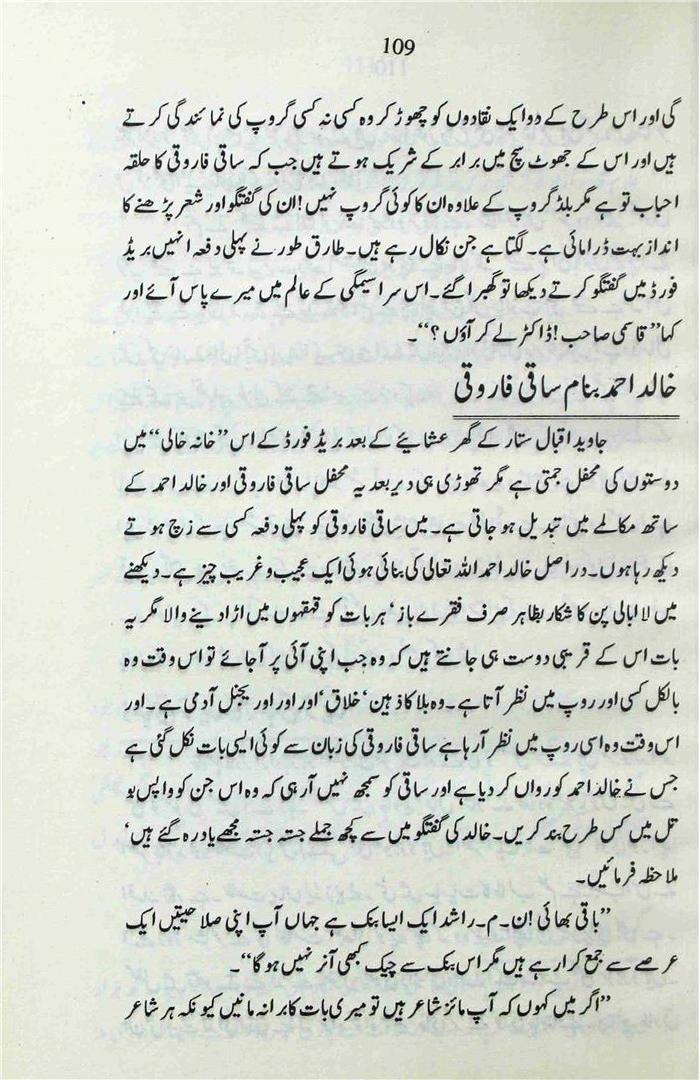 109
گی اور اس طرح کے دو ایک نقادوں کو چھوڑ کر وہ کسی نہ کسی گروپ کی نمائندگی کرتے
ہیں اور اس کے جھوٹ سچ میں برابر کے شریک ہوتے ہیں جب کہ ساقی فاروقی کا حلقہ
احباب تو ہے مگر بلڈ گروپ کے علاوہ ان کا کوئی گروپ نہیں! ان کی گفتگو اور شعر پڑھنے کا
انداز بہت ڈرامائی ہے۔ لگتا ہے جن نکال رہے ہیں۔ طارق طور نے پہلی دفعہ انہیں بریڈ
فورڈ میں گفتگو کرتے دیکھا تو گھبرا گئے۔ اس سراسیمگی کے عالم میں میرے پاس آئے اور
کہا "قاسمی صاحب! ڈاکٹر لے کر آؤں؟"۔
خالد احمد بنام ساقی فاروقی
جاوید اقبال ستار کے گھر عشائیے کے بعد بریڈ فورڈ کے اس "خانہ خالی" میں
دوستوں کی محفل جمتی ہے مگر تھوڑی ہی دیر بعد یہ محفل ساقی فاروقی اور خالد احمد کے
ساتھ مکالمے میں تبدیل ہو جاتی ہے۔ میں ساقی فاروقی کو پہلی دفعہ کسی سے زچ ہوتے
دیکھ رہا ہوں۔ دراصل خالد احمد اللہ تعالی کی بنائی ہوئی ایک عجیب و غریب چیز ہے۔ دیکھنے
میں لا ابالی پن کا شکار بظاہر صرف فقرے باز‘ ہر بات کو قہقہوں میں اڑا دینے والا مگر یہ
بات اس کے قریبی دوست ہی جانتے ہیں کہ وہ جب اپنی آئی پر آجائے تو اس وقت وہ
بالکل کسی اور روپ میں نظر آتا ہے۔ وہ بلا کا ذہین‘ خلاق‘ اور اور اور یجنل آدمی ہے۔ اور
اس وقت وہ اسی روپ میں نظر آرہا ہے ساقی فاروقی کی زبان سے کوئی ایسی بات نکل گئی ہے
جس نے خالد احمد کو رواں کر دیا ہے اور ساقی کو سمجھ نہیں آرہی کہ وہ اس جن کو واپس بو
تل میں کس طرح بند کریں۔ خالد کی گفتگو میں سے کچھ جملے جستہ جستہ مجھے یاد رہ گئے ہیں‘
ملاحظہ فرمائیں۔
"باقی بھائی! ن۔ م۔ راشد ایک ایسا بنک ہے جہاں آپ اپنی صلاحیتیں ایک
عرصے سے جمع کرا رہے ہیں مگر اس بنک سے چیک کبھی آنر نہیں ہو گا"۔
"اگر میں کہوں کہ آپ مائنر شاعر ہیں تو میری بات کا برا نہ مانیں کیونکہ ہر شاعر